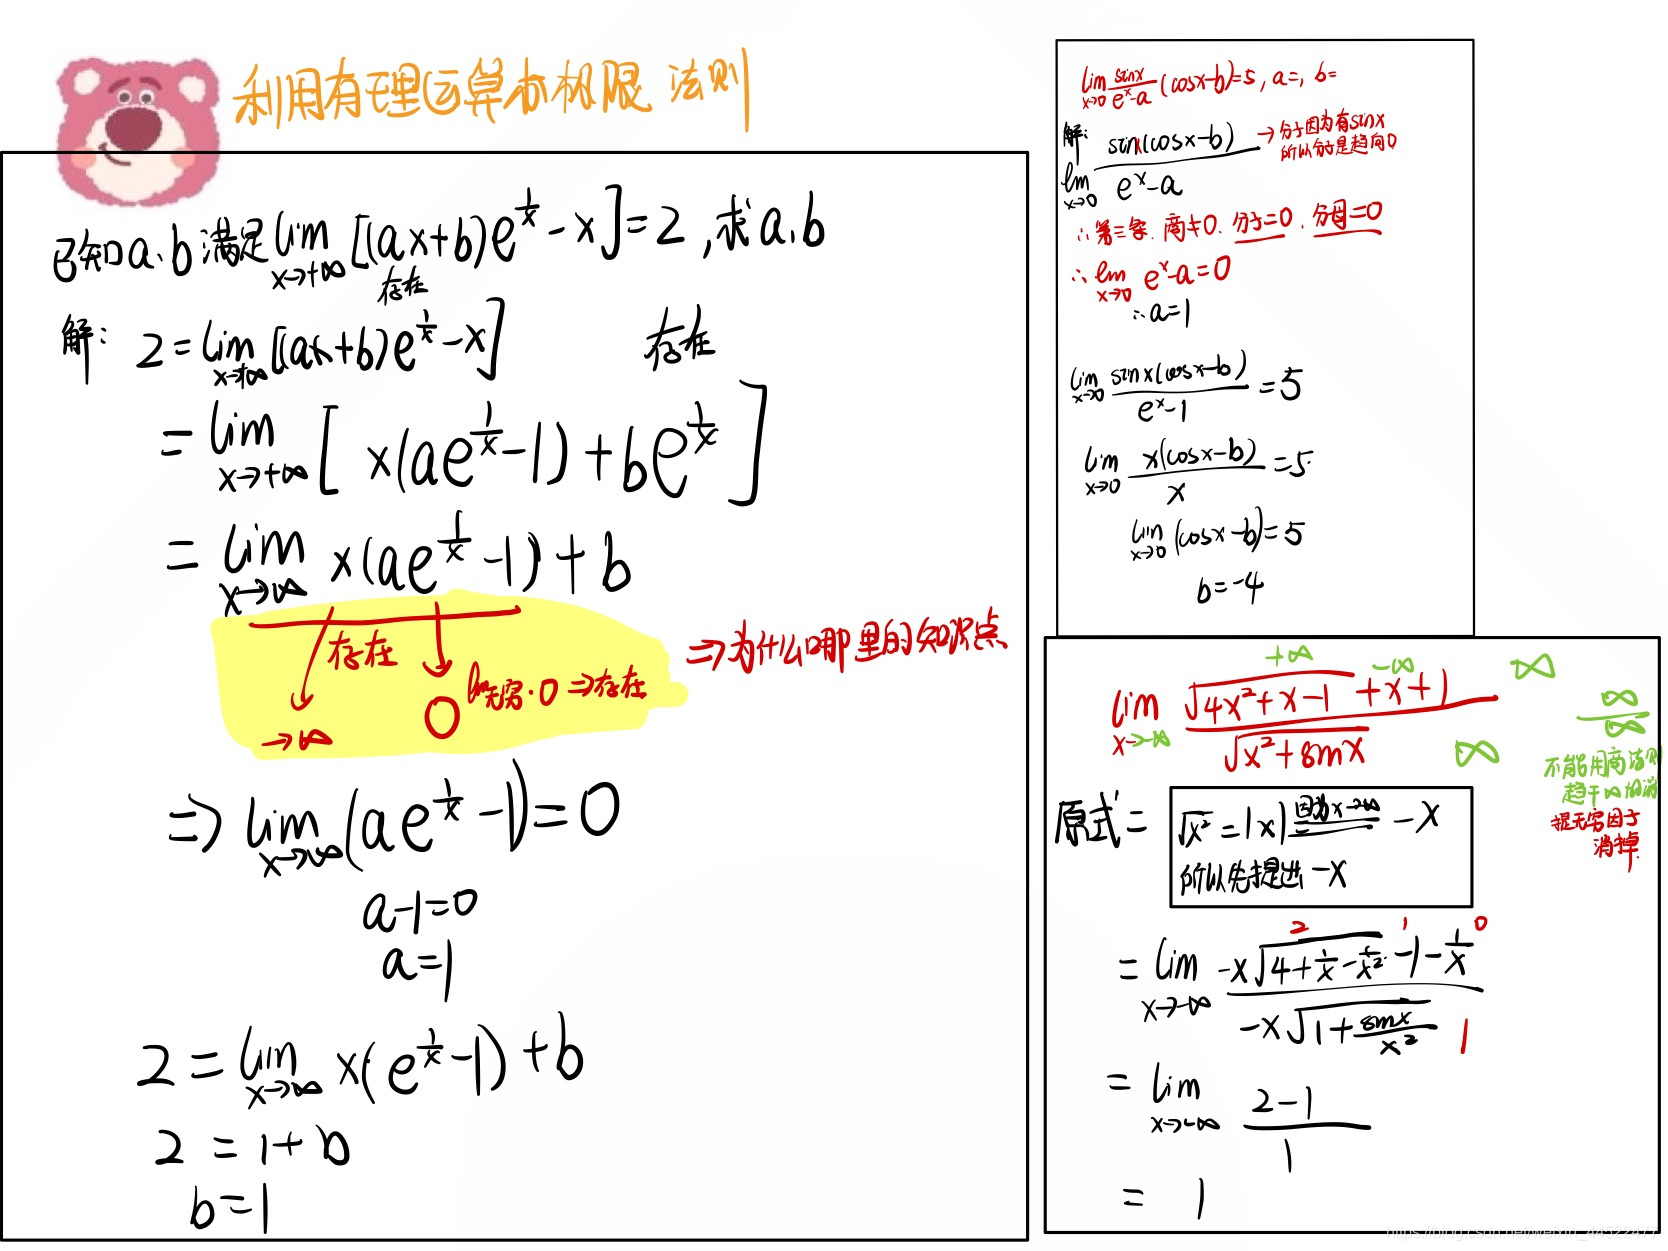 利用有理运算求极限 法则
已知a、b满足 lim x→+∞ [(ax+b)e^{1/x} - x] = 2, 求a、b
存在
解: 2 = lim x→+∞ [(ax+b)e^{1/x} - x]
存在
= lim x→+∞ [x(ae^{1/x} - 1) + be^{1/x}]
= lim x→∞ x(ae^{1/x} - 1) + b
存在
lim 无穷·0 ⇒ 存在
→∞
0
⇒ 为什么 哪里的知识点
⇒ lim x→∞ (ae^{1/x} - 1) = 0
a-1=0
a=1
2 = lim x→∞ x(e^{1/x} - 1) + b
2 = 1+b
b=1
lim x→0 sinx/(e^x - a) (cosx-b)=5, a=, b=
解: lim x→0 sinx(cosx-b)/(e^x - a)
→ 分子因为有sinx
所以分子是趋向0
∴第三条. 商≠0. 分子=0. 分母=0
∴ lim x→0 e^x - a = 0
∴a=1
lim x→0 sinx(cosx-b)/(e^x - 1) = 5
lim x→0 x(cosx-b)/x = 5
lim x→0 (cosx-b) = 5
b=-4
+∞ -∞ ∞
lim x→-∞ (√(4x²+x-1) + x + 1)/√(x²+sinx)
∞
∞/∞
不能用商法则
趋于∞的消
提无穷因子
消掉
原式= √x² = |x| 因为x→-∞ = -x
所以先提出 -x
2 1 0
= lim x→-∞ (-x√(4+1/x-1/x²) -1 - 1/x)/(-x√(1+sinx/x²))
1
= lim x→-∞ (2-1)/1
= 1